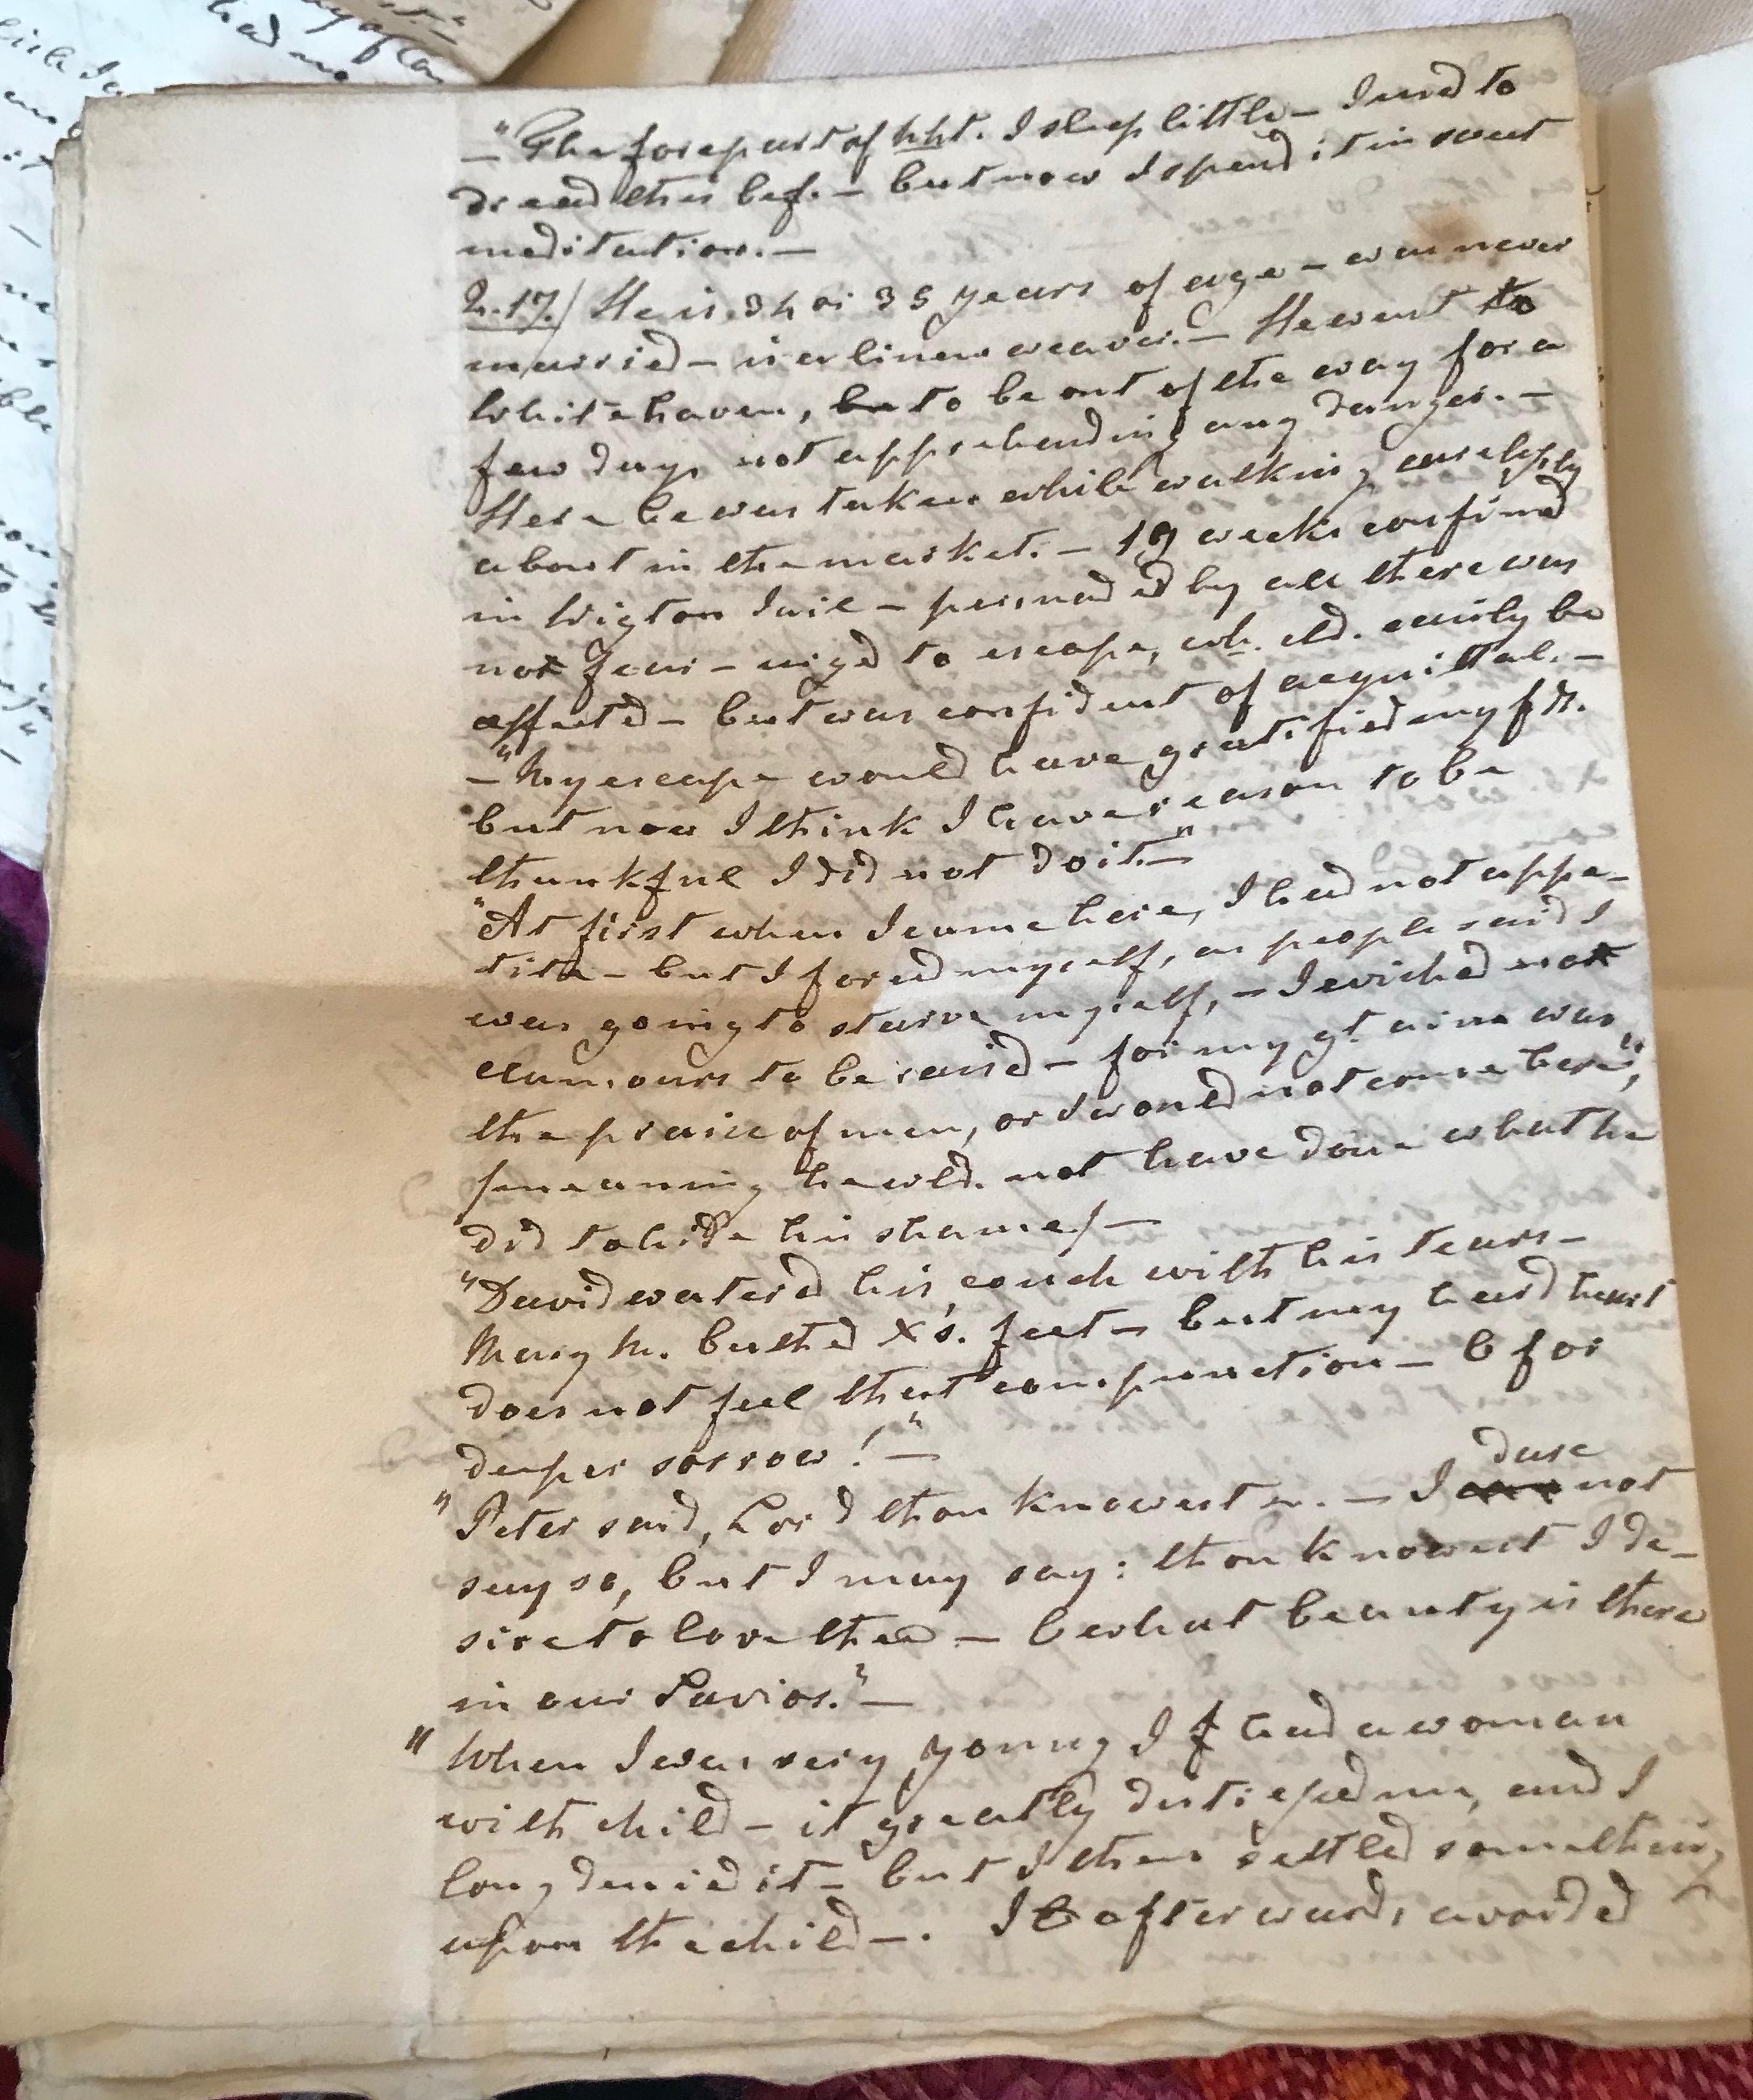 — "The fore part of nht. I sleep little — I used to
dread this bef. — but now I spend it in sweet
meditation. —
N. 17./ He is 34 or 35 years of age — was never
married — is a linen weaver. — He went to
Whitehaven, to be out of the way for a
few days not apprehending any danger. —
Here he was taken while walking carelessly
about in the market. — 19 weeks confined
in Wigton Jail — persuaded by all there was
not fear — urged to escape, wh. cld. easily be
effected — but was confident of acquittal. —
— "My escape would have gratified my fds.
but now I think I have reason to be
thankful I did not do it. —"
"At first when I came here, I had not appe-
tite — but I forced myself, as people said I
was going to starve myself, — I wished not
clamours to be raised — for my gt. aim was
the praise of men, or I would not come here",
/meaning he wld. not have done what he
did to hide his shame/ —
"David watered his couch with his tears —
Mary M. bathed X's. feet — but my hard heart
does not feel that compunction — O for
deeper sorrow!" —
"Peter said, Lord thou knowest &c. — I dare not
say so, but I may say: thou knowest I de-
sire to love thee — O what beauty is there
in our Savior." —
"When I was very young I had a woman
with child — it greatly distressed me, and I
long denied it — but I then settled something
upon the child —. I afterwards avoided